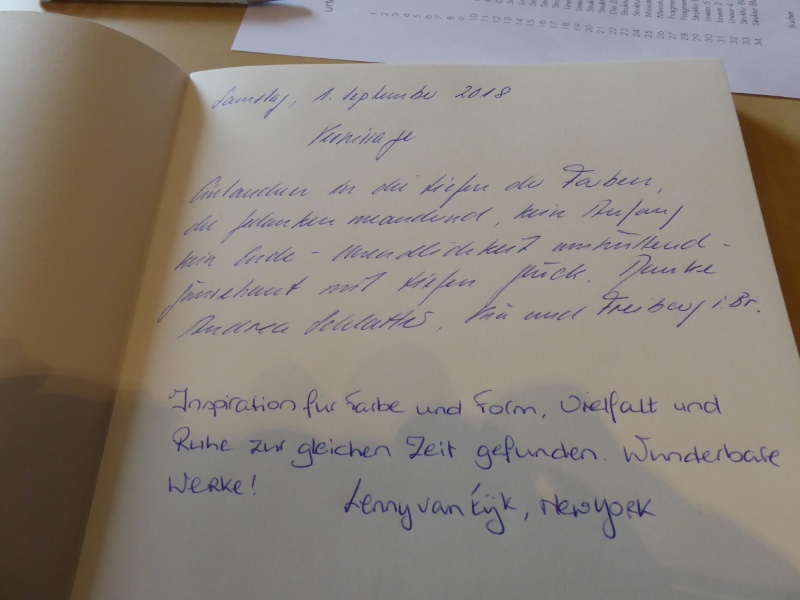 Samstag, 1. September 2018
Vernissage
Eintauchen in die Tiefen der Farben,
die Gedanken meandernd, kein Anfang
kein Ende – Unendlichkeit umhüllend –
Gänsehaut mit tiefem Glück. Danke
Andrea Schlatter, und Freiburg i. Br.
Inspiration für Farbe und Form, Vielfalt und
Ruhe zur gleichen Zeit gefunden. Wunderbare
Werke!
Lenny van Eijk, New York